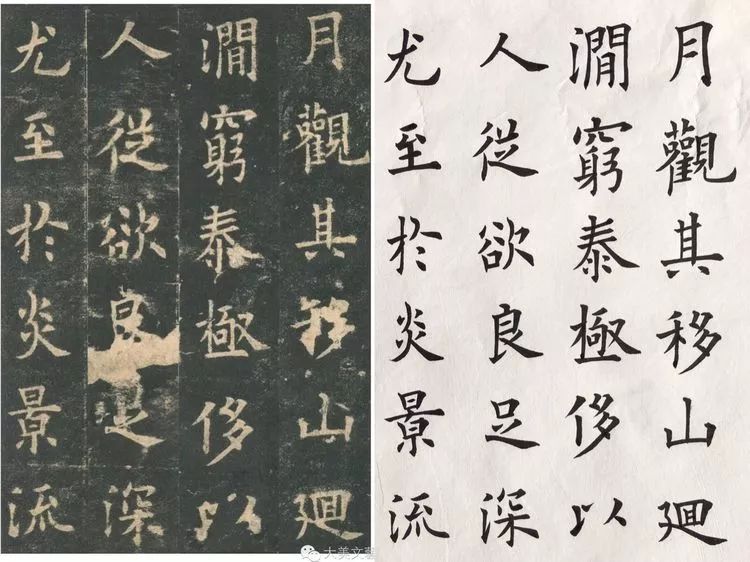 月觀其移山廻
澗窮泰極侈以
人從欲良足深
尤至於炎景流
月觀其移山廻
澗窮泰極侈以
人從欲良足深
尤至於炎景流
大美文